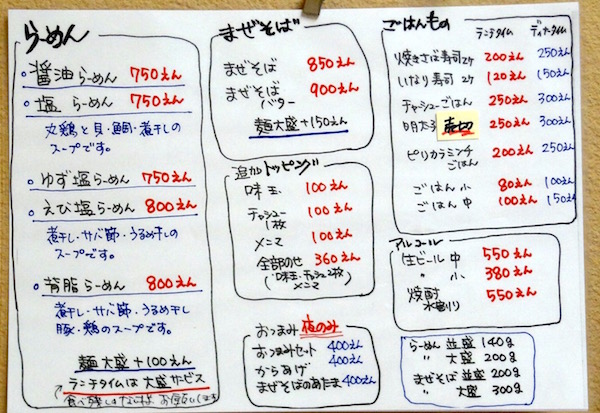 らーめん
醤油らーめん 750えん
塩 らーめん 750えん
丸鶏と貝・鯛・煮干しの
スープです。
ゆず塩らーめん 750えん
えび塩らーめん 800えん
煮干し・サバ節・うるめ干しの
スープです。
背脂らーめん 800えん
煮干し・サバ節・うるめ干し
豚・鶏のスープです。
麺大盛+100えん
ランチタイムは大盛サービス
食べ残しはないよう お願いします
まぜそば
まぜそば 850えん
まぜそば
バター 900えん
麺大盛+150えん
追加トッピング
味玉 100えん
チャシュー
1枚 100えん
メンマ 100えん
全部のせ 360えん
(味玉・チャシュー2枚
メンマ)
おつまみ 夜のみ
おつまみセット 400えん
からあげ 400えん
まぜそばのあたま 400えん
ごはんもの ランチタイム ディナータイム
焼きさば寿司2ケ 200えん 250えん
いなり寿司2ケ 120えん 150えん
チャーシューごはん 250えん 300えん
明太子 売切 250えん 300えん
ピリカラミンチ
ごはん 200えん 250えん
ごはん 小 80えん 100えん
ごはん 中 100えん 150えん
アルコール
生ビール 中 550えん
〃 小 380えん
焼酎
水割り 550えん
らーめん 並盛 140g
〃 大盛 200g
まぜそば 並盛 200g
大盛 300g